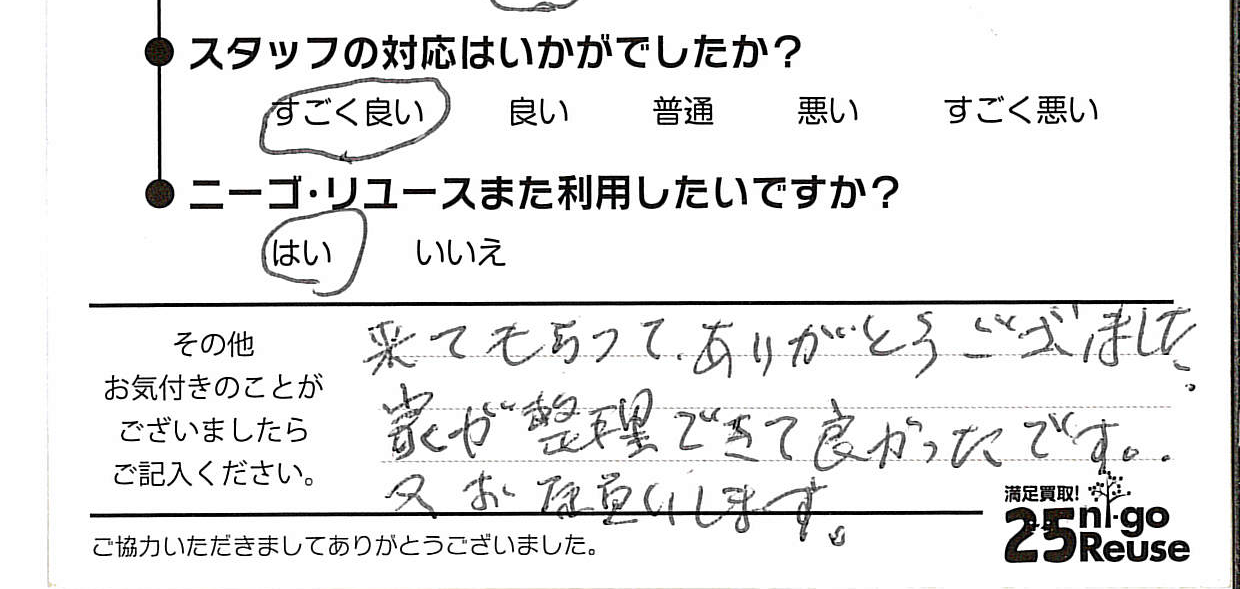 スタッフの対応はいかがでしたか?
すごく良い 良い 普通 悪い すごく悪い
ニーゴ・リユースまた利用したいですか?
はい いいえ
その他
お気付きのことが
ございましたら
ご記入ください。
来てもらって、ありがとうございました。
家が整理できて良かったです。
又お願いします。
満足買取!
25 ni-go
Reuse
ご協力いただきましてありがとうございました。